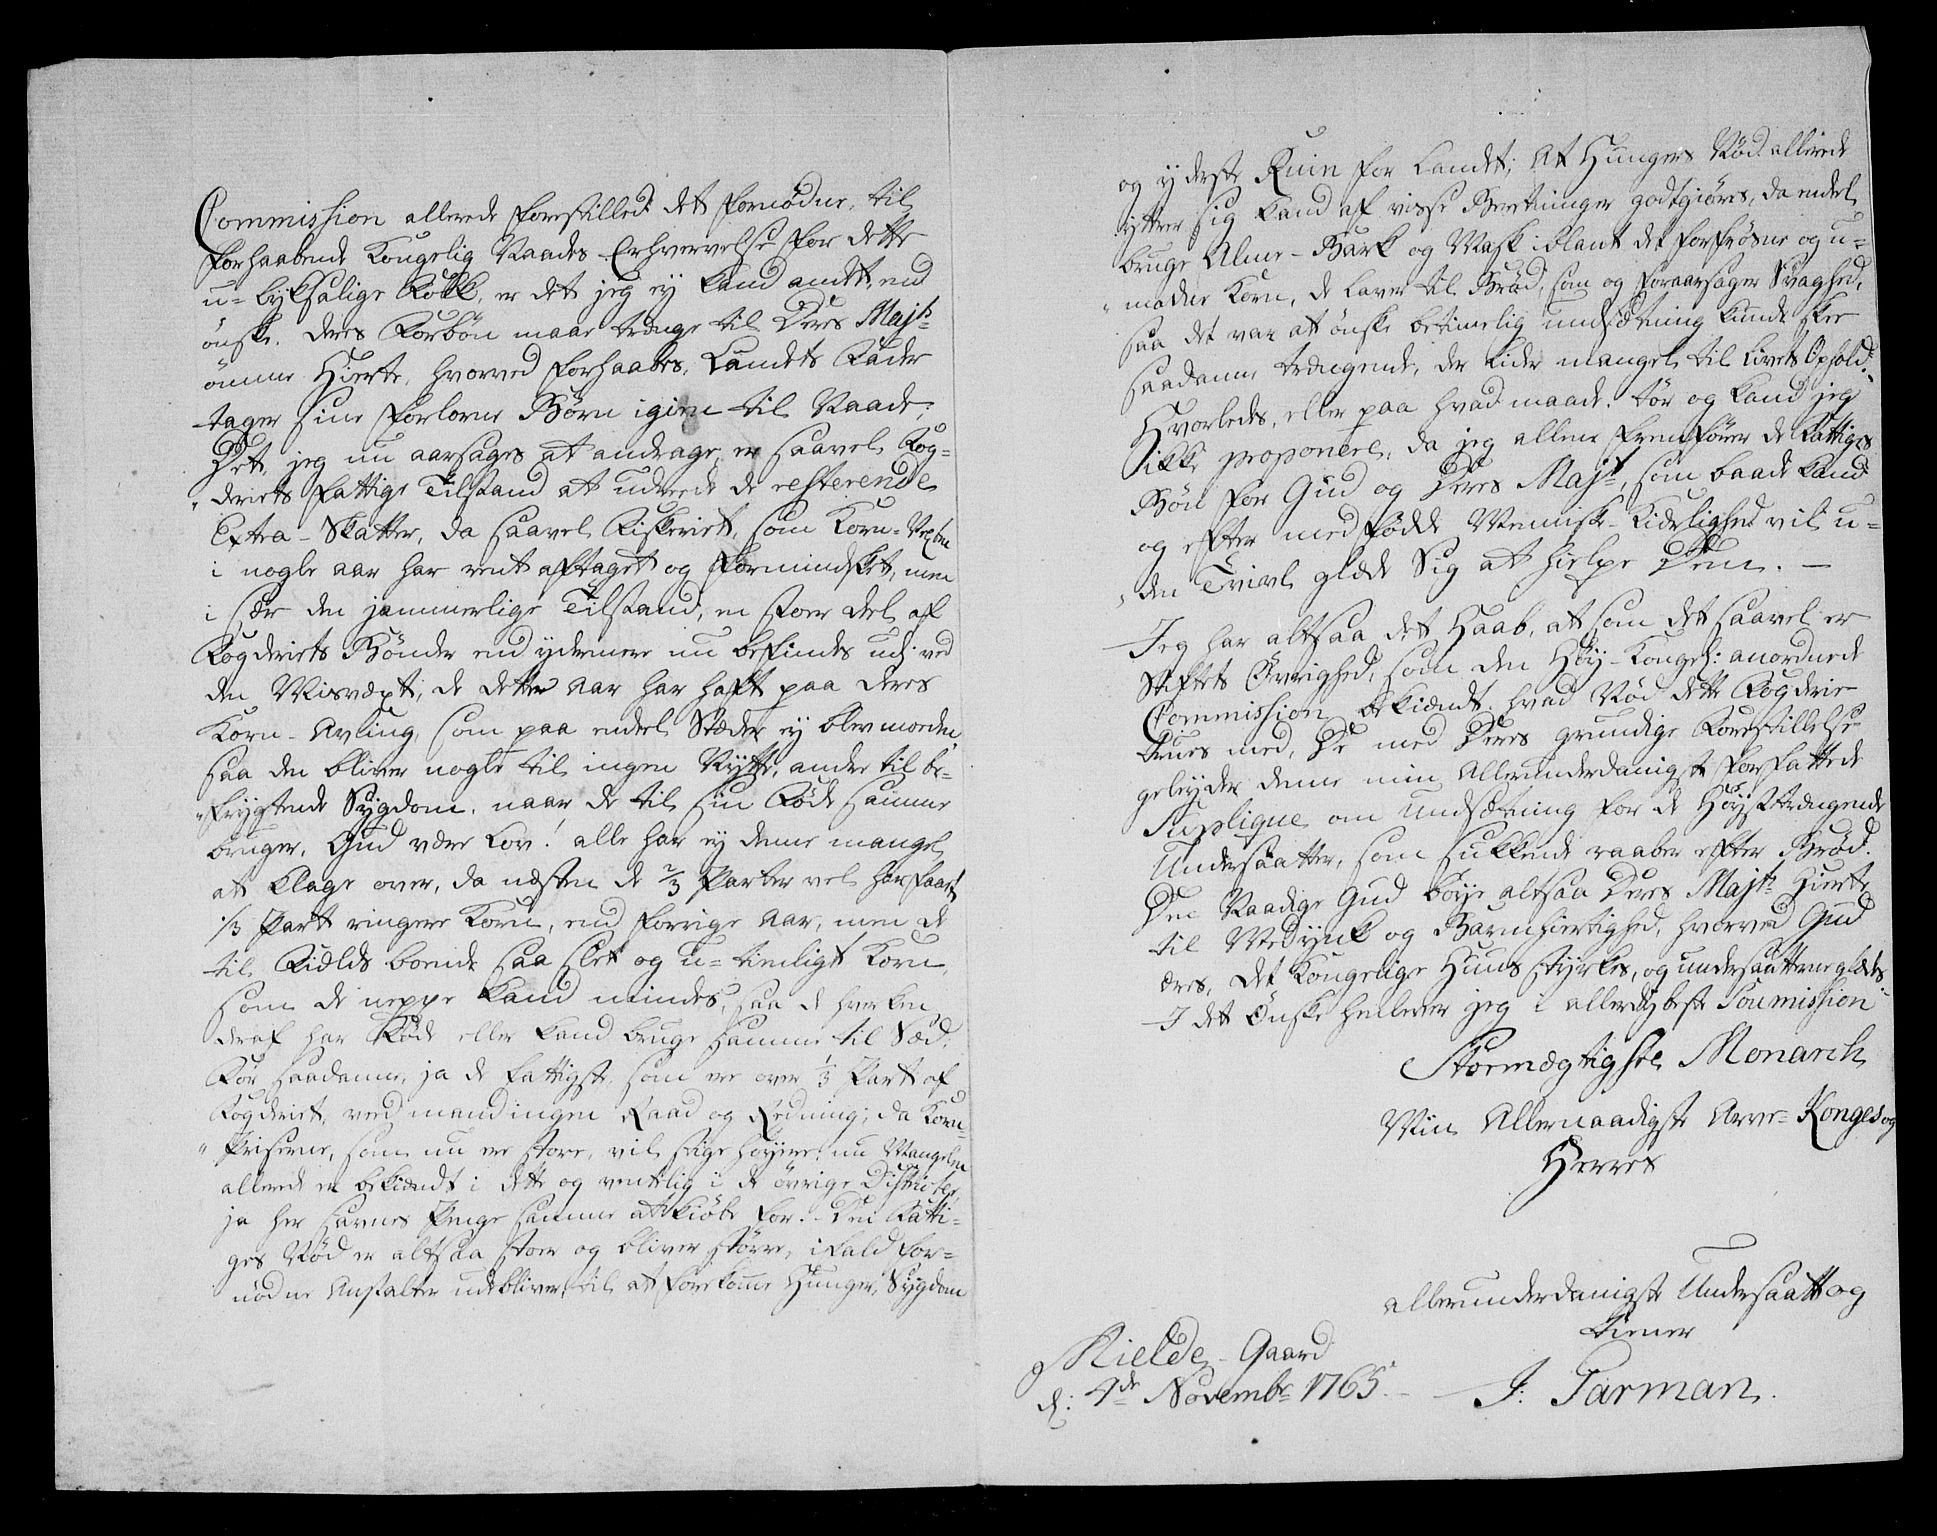 Commission allerede forestillet det fornødne, til
forhaabende Kongelig Naades Erhvervelse for dette
u-lyksalige Folk, er det jeg ey kand andet, end
ønske, deres Forbøn maae trænge til Deres Majts
ømme Hierte, hvorved forhaabes, Landets Fader
tager sine forlorne Børn igien til Naade;
Det, jeg nu aarsages at andrage, er saavel Fog-
deriets fattige Tilstand at udreede de resterende
Extra-Skatter, da saavel Fiskeriet, som Korn-Vexten
i nogle aar har rent aftaget og formindsket, men
i sær den jammerlige Tilstand, en stoer deel af
Fogderiets Bønder end ydermere nu befindes udj ved
den Misvæxt, de dette Aar har haft paa deres
Korn-Avling, som paa endeel Stæder ey blev moeden,
saa den bliver nogle til ingen Nytte, andre til be-
frygtende Sygdom, naar de til sin Føde samme
bruger, Gud være Lov! alle har ey denne mangel
at klage over, da næsten de 2/3 Parter vel har faaet
1/3 Part ringere Korn, end forrige Aar, men de
til Fields boende saa slet og u-tienligt Korn,
som de neppe kand mindes, saa de hverken
deraf har Føde eller kand bruge samme til Sæd;
For saadanne, ja de fattigste, som ere over 1/3 Part af
Fogderiet, veed mand ingen Raad og Redning; da Korn-
Priserne, som nu ere store, vil stige høyere, nu Mangelen
allerede er bekiendt i dette og ventelig i de øvrige Districter,
ja her savnes Penge samme at kiøbe for. Den Fatti-
ges Nød er altsaa stoer og bliver større, ifald for-
nødne Anstalter udebliver, til at forekomme Hunger, Sygdom
og yderste Ruin for Landet; At Hungers Nød allerede
yttrer sig kand af visse Beretninger godtgiøres, da endel
bruge Alme-Bark og Mask iblant det forfrøsne og u-
modne Korn, de laver til Brød, som og foraarsager Svaghed,
saa det var at ønske betimelig undsætning kunde skee
saadanne trængende, der lider mangel til Livets Ophold;
Hvorledes, eller paa hvad maade, tør og kand jeg
ikke proponere, da jeg allene fremfører de Fattiges
Bøn for Gud og Deres Majt, som baade kand
og efter medfødde Menniske-Kiærlighed vil u-
den Tvivl glæde Sig at hielpe Dem. —
Jeg har altsaa det Haab, at som det saavel er
Stiftets Øvrighed, som den Høy-Kongel: anordnede
Commission bekiændt, hvad Nød dette Fogderie
trues med, De med Deres grundige Forestillelse
geleyder denne min Allerunderdanigst forfattede
Supplique om Undsætning for de Høyst trængende
Undersaatter, som sukkende raaber efter Brød.
Den Naadige Gud bøye altsaa Deres Majts Hierte
til Medynk og Barmhiertighed, hvorved Gud
æres, det Kongelige Huus styrkes, og undersaatterne glædes.
I det Ønske henlever jeg i allerdybeste Soumission
Stormægtigste Monarch
Min Allernaadigste Arve-Konges og
Herres
allerunderdanigste Undersaatt og
tiener
Mielde-Gaard
d: 4de Novembr 1765. — J: Parman.